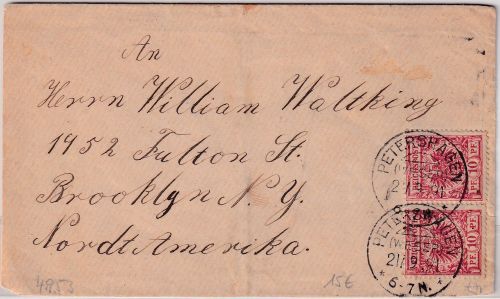 An
Herrn William Waltking
1452 Fulton St.
Brooklyn N.Y.
Nordt Amerika.
PETERSHAGEN
21/9
10 PF.
PETERSHAGEN
21/9
6-7N.
10 PF.
4953
15€